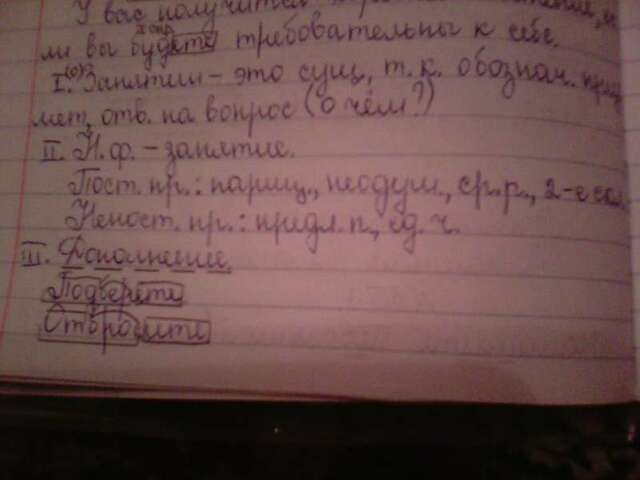 У вас получится
ли вы будете требовательны к себе.
I. (о) Занятии - это сущ., т.к. обознач. пред
мет, отв. на вопрос (о чём?)
II. Н.ф. - занятие.
Пост. пр.: нариц., неодуш., ср.р., 2-е скл.
Непост. пр.: предл.п., ед.ч.
III. Дополнение.
Подберёте
Отбросите